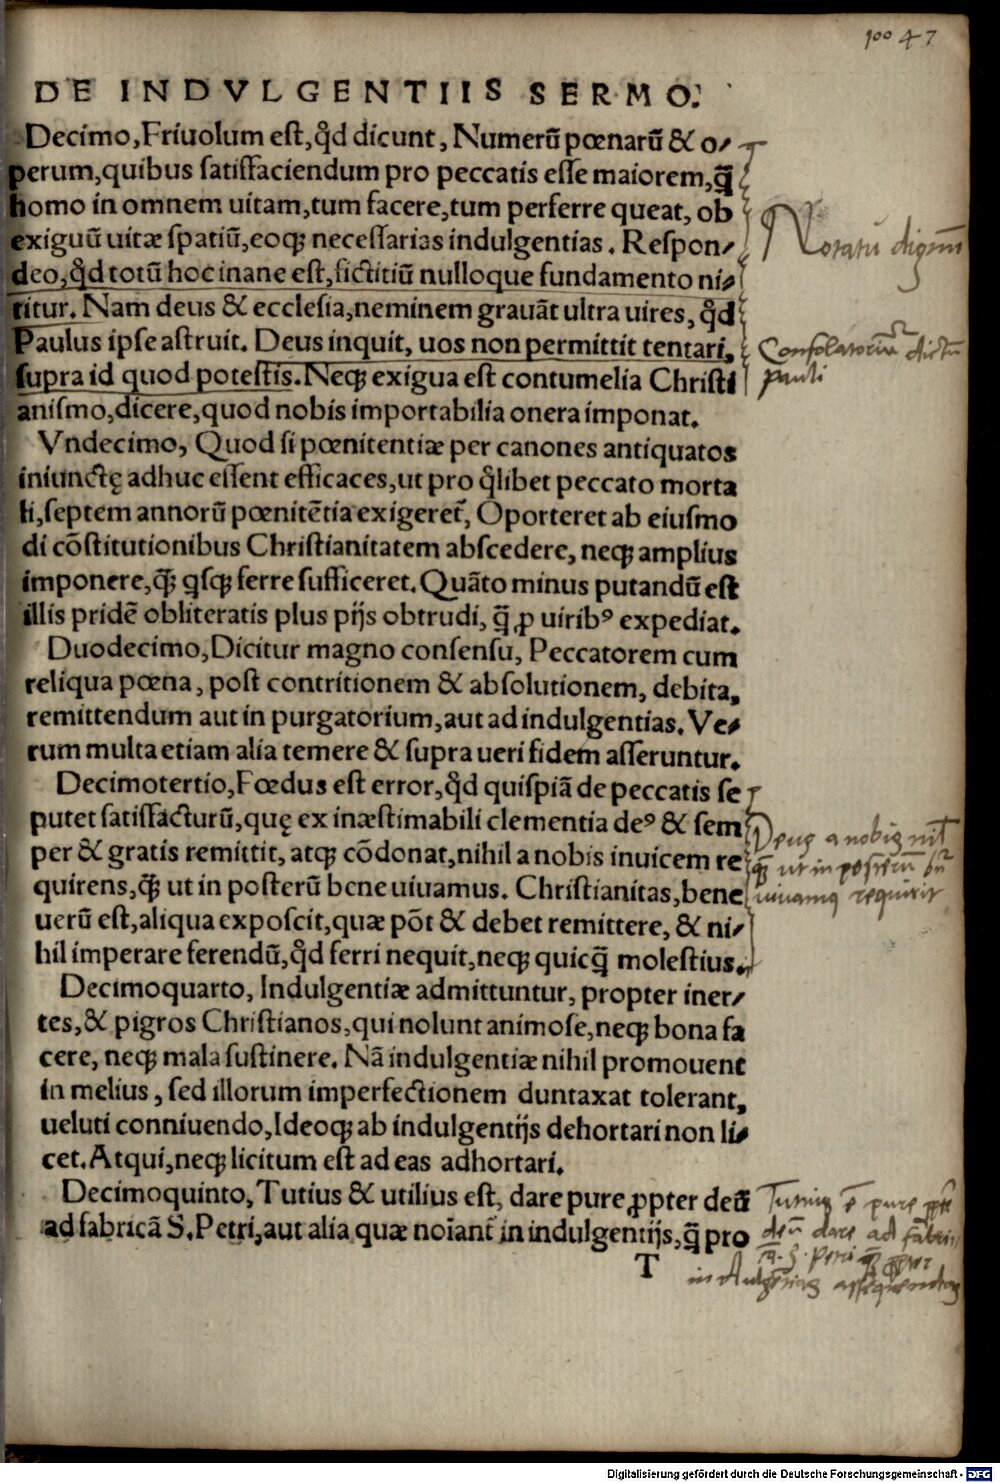 100 47
DE INDVLGENTIIS SERMO.
Decimo, Friuolum est, qđ dicunt, Numerũ pœnarũ & o-
perum, quibus satisfaciendum pro peccatis esse maiorem, q̃
homo in omnem uitam, tum facere, tum perferre queat, ob
exiguũ uitæ spatiũ, eoqꝫ necessarias indulgentias. Respon-
deo, qđ totũ hoc inane est, fictitiũ nulloque fundamento ni-
titur. Nam deus & ecclesia, neminem grauãt ultra uires, qđ
Paulus ipse astruit. Deus inquit, uos non permittit tentari,
supra id quod potestis. Neqꝫ exigua est contumelia Christi
anismo, dicere, quod nobis importabilia onera imponat.
Vndecimo, Quod si pœnitentiæ per canones antiquatos
iniunctę adhuc essent efficaces, ut pro qͥlibet peccato morta
li, septem annorũ pœnitẽtia exigeret̃, Oporteret ab eiusmo
di cõstitutionibus Christianitatem abscedere, neqꝫ amplius
imponere, q̃ꝫ qͥsqꝫ ferre sufficeret. Quãto minus putandũ est
illis pridẽ obliteratis plus pijs obtrudi, q̃ ꝓ uiribꝰ expediat.
Duodecimo, Dicitur magno consensu, Peccatorem cum
reliqua pœna, post contritionem & absolutionem, debita,
remittendum aut in purgatorium, aut ad indulgentias. Ve-
rum multa etiam alia temere & supra ueri fidem asseruntur.
Decimotertio, Fœdus est error, qđ quispiã de peccatis se
putet satisfacturũ, quę ex inæstimabili clementia deꝰ & sem
per & gratis remittit, atqꝫ cõdonat, nihil a nobis inuicem re
quirens, q̃ꝫ ut in posterũ bene uiuamus. Christianitas, bene
uerũ est, aliqua exposcit, quæ põt & debet remittere, & ni-
hil imperare ferendũ, qđ ferri nequit, neqꝫ quicq̃ molestius.
Decimoquarto, Indulgentiæ admittuntur, propter iner-
tes, & pigros Christianos, qui nolunt animose, neqꝫ bona fa
cere, neqꝫ mala sustinere. Nã indulgentiæ nihil promouent
in melius, sed illorum imperfectionem duntaxat tolerant,
ueluti conniuendo, Ideoqꝫ ab indulgentijs dehortari non li-
cet. Atqui, neqꝫ licitum est ad eas adhortari.
Decimoquinto, Tutius & utilius est, dare pure ꝓpter deũ
ad fabricã S. Petri, aut alia quæ noĩant̃ in indulgentijs, q̃ pro
T
Notatu dignũ
Consolatoriũ dictũ
pauli
Deus a nobis nil
q̃ꝫ ut in posterũ bñ
uiuamus requirit
Tutius ẽ pure ꝓpter
deũ dare ad fabri
cã. S. Petri q̃ꝫ ꝓpter
indulgẽtias assequendas
Digitalisierung gefördert durch die Deutsche Forschungsgemeinschaft - DFG